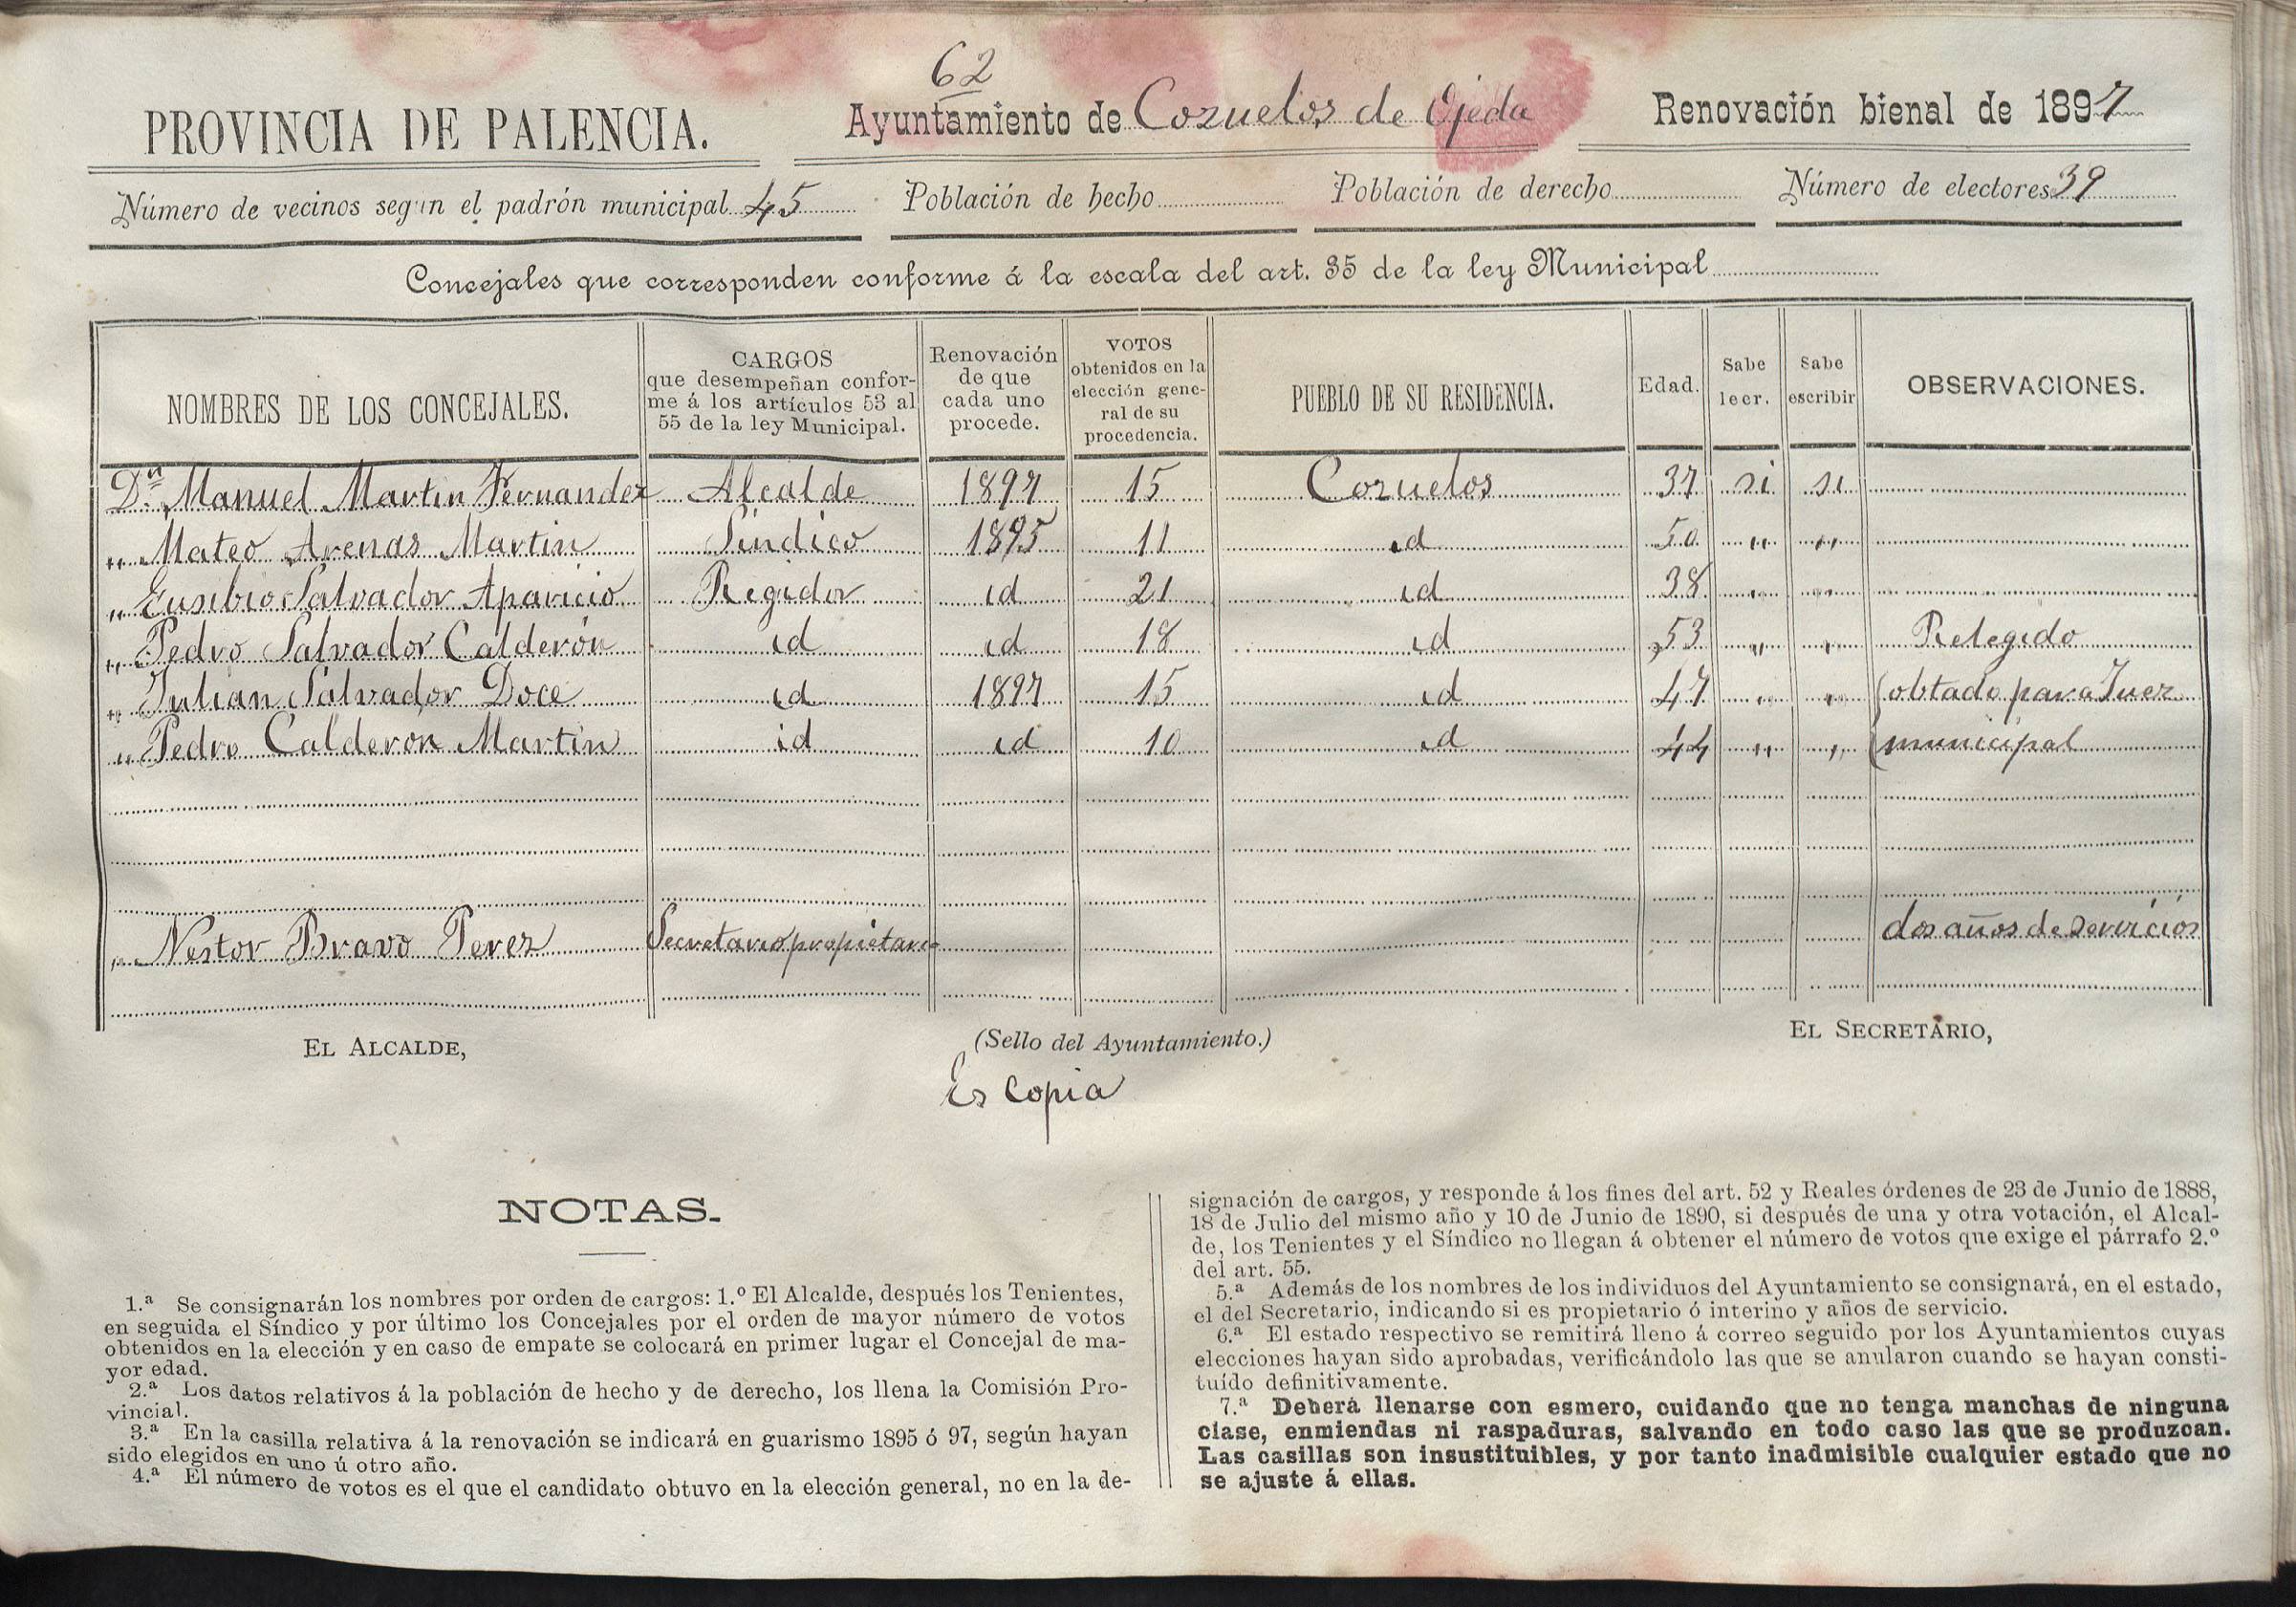 62
PROVINCIA DE PALENCIA.
Ayuntamiento de Cozuelos de Ojeda
Renovación bienal de 1897
Número de vecinos segun el padrón municipal 45
Población de hecho
Población de derecho
Número de electores 39
Concejales que corresponden conforme á la escala del art. 35 de la ley Municipal
NOMBRES DE LOS CONCEJALES.
CARGOS
que desempeñan confor-
me á los artículos 53 al
55 de la ley Municipal.
Renovación
de que
cada uno
procede.
VOTOS
obtenidos en la
elección gene-
ral de su
procedencia.
PUEBLO DE SU RESIDENCIA.
Edad.
Sabe
leer.
Sabe
escribir
OBSERVACIONES.
Dn. Manuel Martin Fernandez Alcalde 1897 15 Cozuelos 37 si si
„ Mateo Arenas Martin Sindico 1895 11 id 50 „ „
„ Eusebio Salvador Aparicio Regidor id 21 id 38 „ „
„ Pedro Salvador Calderón id id 18 id 53 „ „ Relegido
„ Julian Salvador Doce id 1897 15 id 47 „ „ (obtado para Juez
„ Pedro Calderon Martin id id 10 id 44 „ „ (municipal
„ Nestor Bravo Perez Secretario propietario dos años de servicios
EL ALCALDE,
(Sello del Ayuntamiento.)
EL SECRETARIO,
Es copia
NOTAS.
1.ª Se consignarán los nombres por orden de cargos: 1.º El Alcalde, después los Tenientes,
en seguida el Síndico y por último los Concejales por el orden de mayor número de votos
obtenidos en la elección y en caso de empate se colocará en primer lugar el Concejal de ma-
yor edad.
2.ª Los datos relativos á la población de hecho y de derecho, los llena la Comisión Pro-
vincial.
3.ª En la casilla relativa á la renovación se indicará en guarismo 1895 ó 97, según hayan
sido elegidos en uno ú otro año.
4.ª El número de votos es el que el candidato obtuvo en la elección general, no en la de-
signación de cargos, y responde á los fines del art. 52 y Reales órdenes de 23 de Junio de 1888,
18 de Julio del mismo año y 10 de Junio de 1890, si después de una y otra votación, el Alcal-
de, los Tenientes y el Síndico no llegan á obtener el número de votos que exige el párrafo 2.º
del art. 55.
5.ª Además de los nombres de los individuos del Ayuntamiento se consignará, en el estado,
el del Secretario, indicando si es propietario ó interino y años de servicio.
6.ª El estado respectivo se remitirá lleno á correo seguido por los Ayuntamientos cuyas
elecciones hayan sido aprobadas, verificándolo las que se anularon cuando se hayan consti-
tuído definitivamente.
7.ª Deberá llenarse con esmero, cuidando que no tenga manchas de ninguna
clase, enmiendas ni raspaduras, salvando en todo caso las que se produzcan.
Las casillas son insustituibles, y por tanto inadmisible cualquier estado que no
se ajuste á ellas.